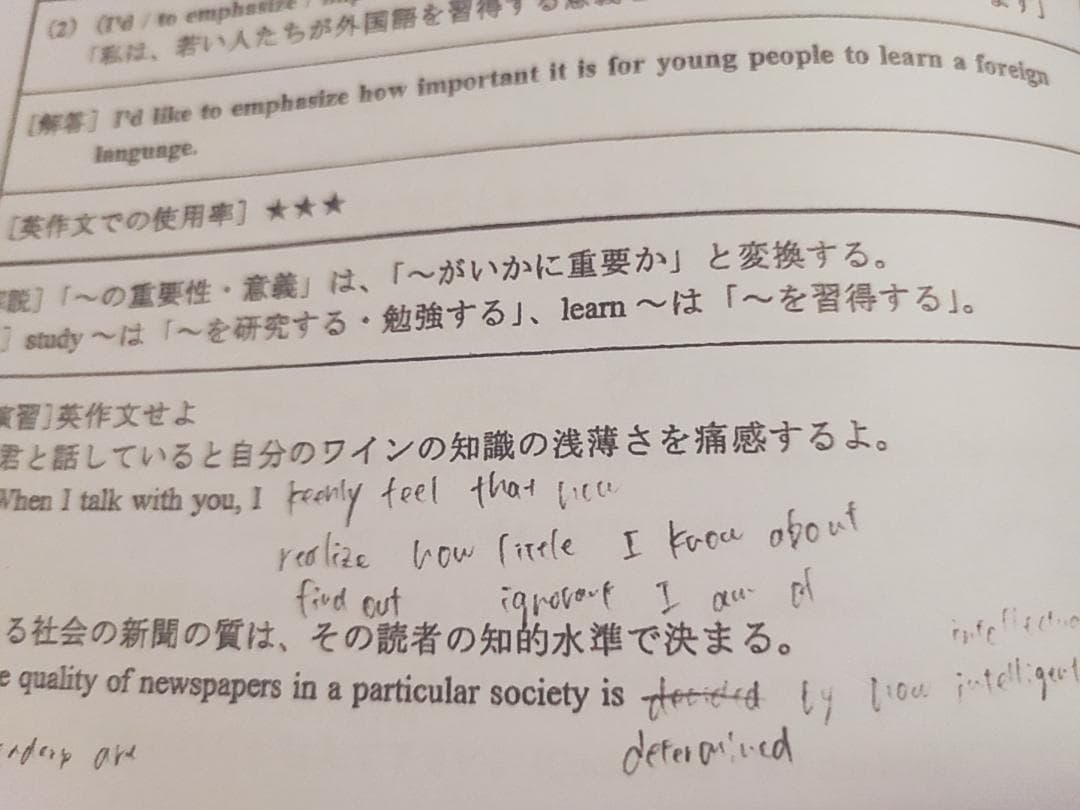 (2) (I'd / to emphasize /
「私は、若い人たちが外国語を習得する
ます」
[解答] I'd like to emphasize how important it is for young people to learn a foreign
language.
[英作文での使用率] ★★★
説]「～の重要性・意義」は、「～がいかに重要か」と変換する。
] study ～は「～を研究する・勉強する」、learn ～は「～を習得する」。
演習]英作文せよ
君と話していると自分のワインの知識の浅薄さを痛感するよ。
When I talk with you, I keenly feel that
realize how little I know about
find out ignorant I am of
る社会の新聞の質は、その読者の知的水準で決まる。
e quality of newspapers in a particular society is decided by how intelligent
determined
are